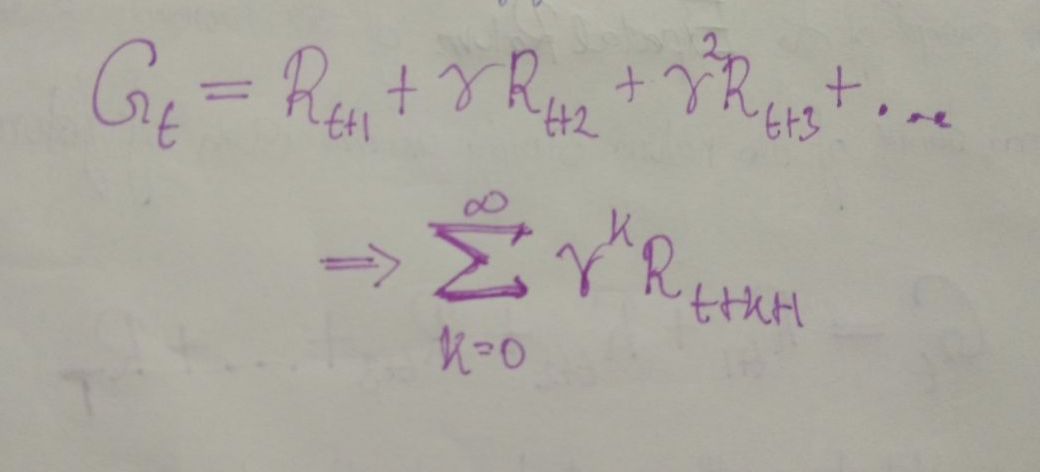 Gₜ = Rₜ₊₁ + γRₜ₊₂ + γ²Rₜ₊₃ + ...
⇒ ∑_{k=0}^{∞} γᵏ R_{t+k+1}